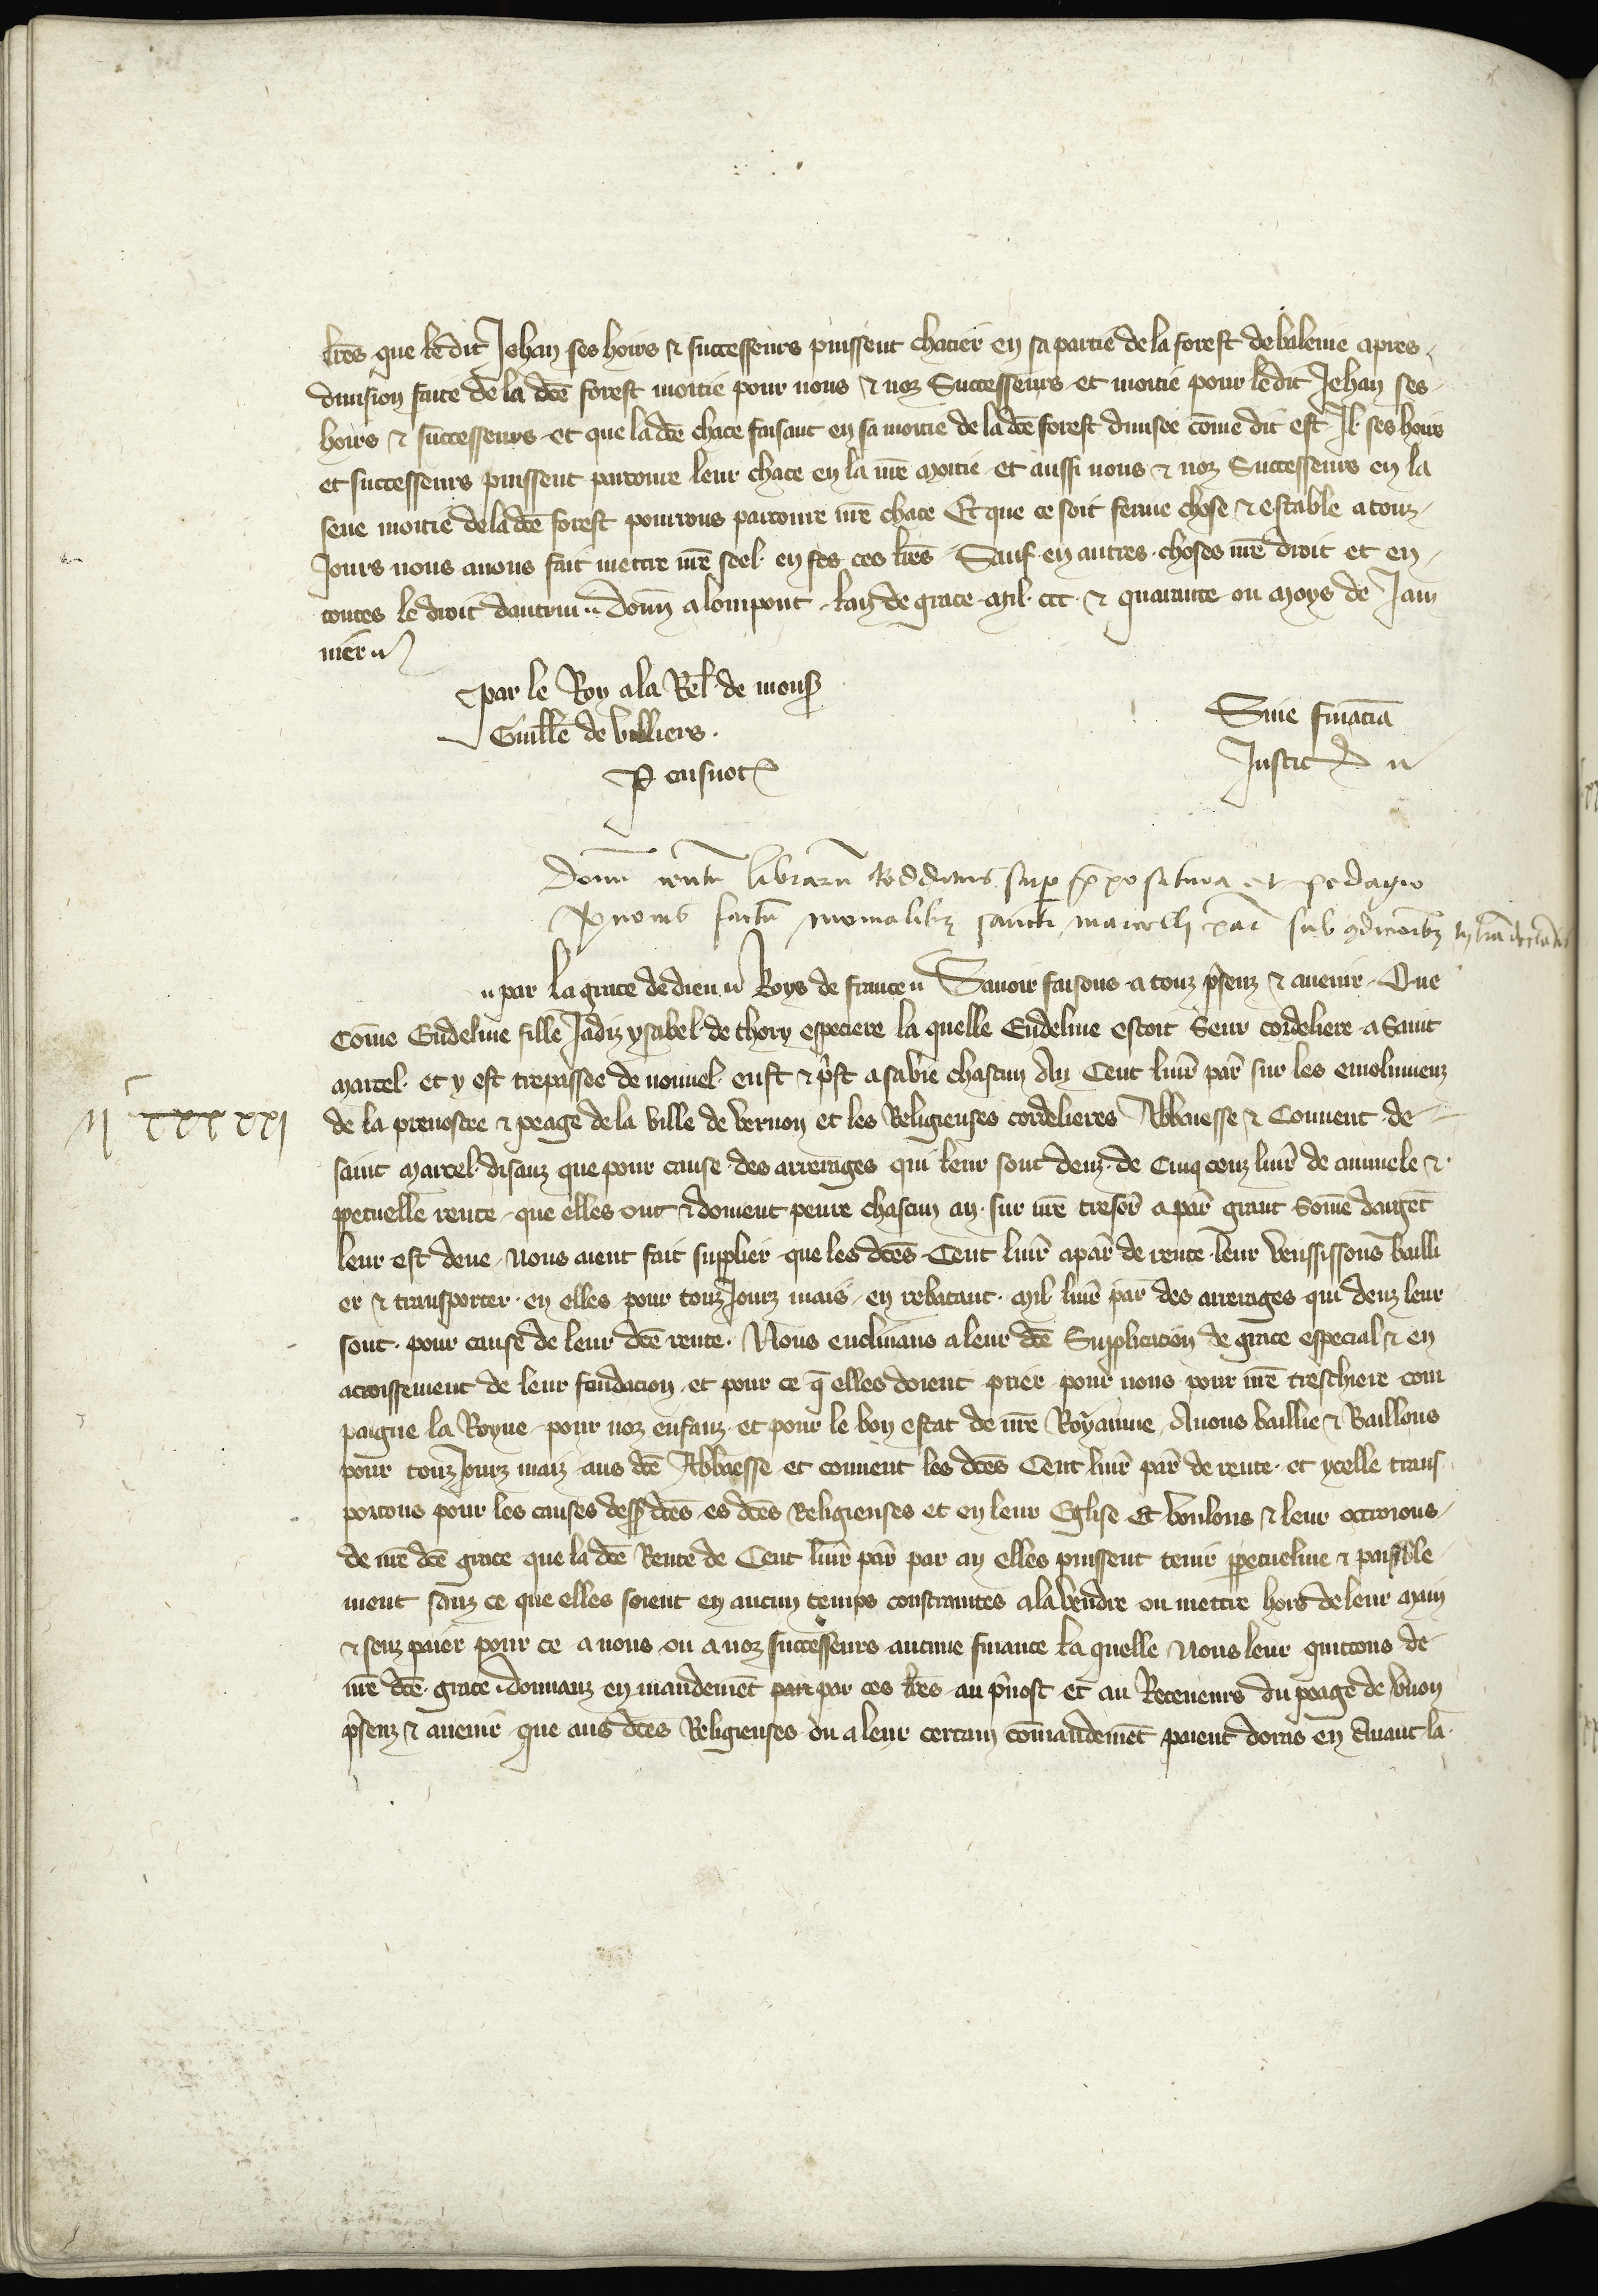 lr̃es que ledit Jehan ses hoirs & successeurs puissent chacier en sa partie de la forest de balenie apres
diuision faite de la dc̃e forest moitie pour nous & noz Successeurs et moitie pour ledit Jehan ses
hoirs & successeurs et que la dc̃e chace faisant en sa moitie de la dc̃e forest diuisee com̃e dit est Il ses hoirs
et successeurs puissent parcourre leur chace en la nr̃e moitie et aussi nous & noz Successeurs en la
seue moitie de la dc̃e forest pourrons parcourre nr̃e chace Et que ce soit ferme chose & estable a touz
Jours nous auons fait mettre nr̃e seel en ses ces lr̃es Sauf en autres choses nr̃e droit et en
toutes le droit dautrui donn̄ a lonpont lan de grace mil ccc & quarante ou moys de Jan
uier
par le Roy a la Rel̃ de mons̃
Guill̃e de Villiers
Sine financia
Donũ centũ librarũ redditus sup p̃positura et pedagio
factũ monialib₃ sancti marcelli par̃ sub 9dicionib₃
par la grace de dieu Roys de france Sauoir faisons a touz p̃senz & auenir Que
Com̃e Eudeline fille Jadiz ysabel de thory especiere la quelle Eudeline estoit Seur cordeliere a Saint
marcel et y est trepassee de nouuel eust & p̃st a sa vie chascun An Cent liur̃ par̃ sur les emolumenz
II C XXXI
de la preuostee & peage de la ville de vernon et les Religieuses cordelieres Abbeesse & Couuent de
saint marcel disanz que pour cause des arrerages qui leur sont deuz de Cinq cenz liur̃ de annuele &
ꝑpetuelle rente que elles ont & doiuent penre chascun an sur nr̃e tresor̃ a par̃ grant Som̃e dargẽt
leur est deue nous aient fait supplier que les dc̃es Cent liur̃ a par̃ de rente leur vousissons bailli
er & transporter en elles pour touz Jourz mais en rebatant mil liur̃ par̃ des arrerages qui deuz leur
sont pour cause de leur dc̃e rente Nous enclinans a leur dc̃e Supplicacion de grace especial & en
acroissement de leur fondacion et pour ce q̃ elles doient prier pour nous pour nr̃e treschiere com
paigne la Royne pour noz enfanz et pour le bon estat de nr̃e Royaume Auons baillie & Baillons
pour touz Jourz maiz aus dc̃e Abbeesse et couuent les dc̃es Cent liur̃ par̃ de rente et ycelle trans
portons pour les causes dess̃ dc̃es es dc̃es Religieuses et en leur Eglise Et voulons & leur octroions
de nr̃e dc̃e grace que la dc̃e Rente de Cent liur̃ par̃ par an elles puissent tenir ꝑpetuelme & paisible
ment sanz ce que elles soient en aucun temps constraintes a la vendre ou mettre hors de leur main
& senz paier pour ce a nous ou a noz successeurs aucune finance la quelle nous leur quittons de
nr̃e dc̃e grace donnanz en mandemẽt par par ces lr̃es au p̃uost et au Receueurs du peage de v̄non
p̃senz & auenir que aus dc̃es Religieuses ou a leur certain com̃andemẽt paient dores en Auant la